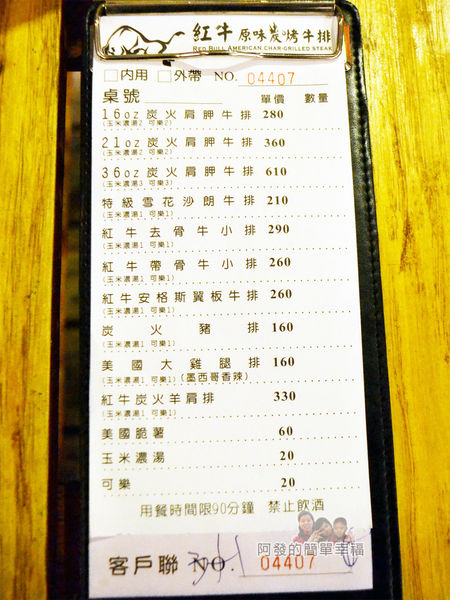 紅牛 原味炭烤牛排
RED BULL AMERICAN CHAR-GRILLED STEAK
內用 外帶 NO. 04407
桌號 單價 數量
16oz 炭火肩胛牛排 280
(玉米濃湯2 可樂2)
21oz 炭火肩胛牛排 360
(玉米濃湯2 可樂2)
36oz 炭火肩胛牛排 610
(玉米濃湯3 可樂3)
特級雪花沙朗牛排 210
(玉米濃湯1 可樂1)
紅牛去骨牛小排 290
(玉米濃湯1 可樂1)
紅牛帶骨牛小排 260
(玉米濃湯1 可樂1)
紅牛安格斯翼板牛排 260
(玉米濃湯1 可樂1)
炭火豬排 160
(玉米濃湯1 可樂1)
美國大雞腿排 160
(玉米濃湯1 可樂1) (墨西哥香辣)
紅牛炭火羊肩排 330
(玉米濃湯1 可樂1)
美國脆薯 60
玉米濃湯 20
可樂 20
用餐時間限90分鐘 禁止飲酒
阿發的簡單幸福
客戶聯 NO. 04407